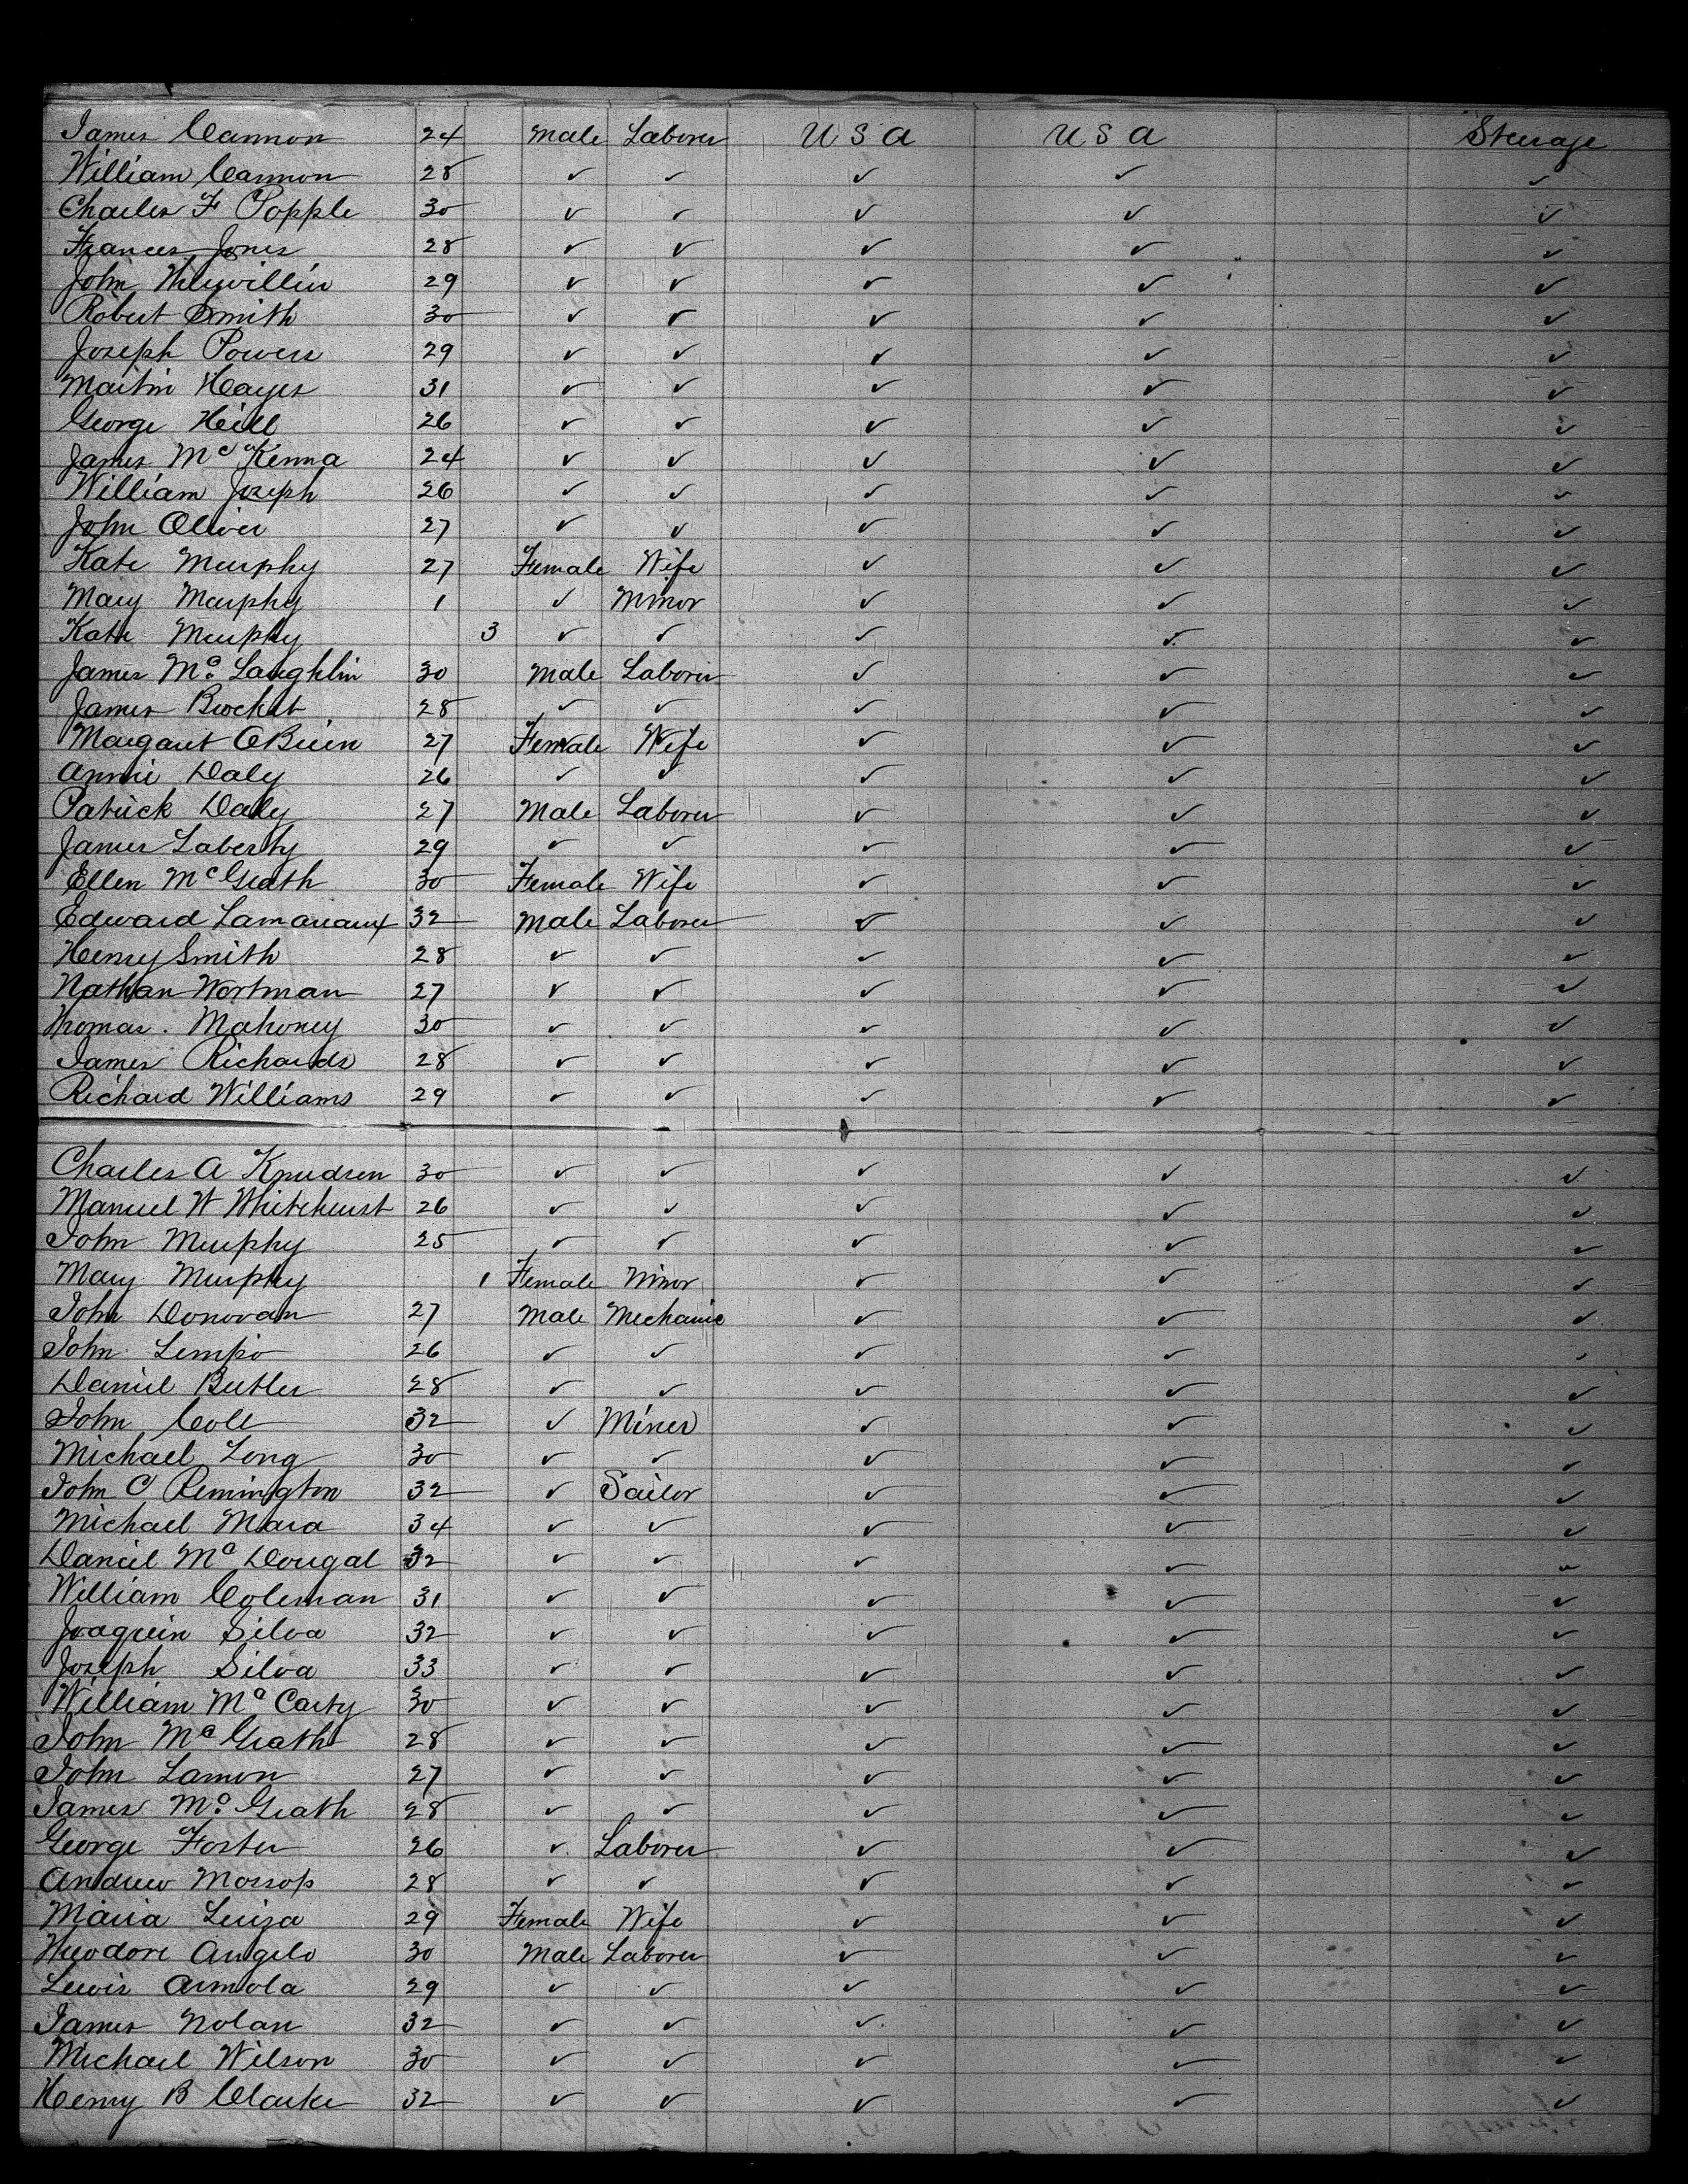 James Cannon 24 Male Laborer U S A U S A Steerage
William Cannon 28 ✓ ✓ ✓ ✓ ✓
Charles F Popple 30 ✓ ✓ ✓ ✓ ✓
Frances Jones 28 ✓ ✓ ✓ ✓ ✓
John 29 ✓ ✓ ✓ ✓ ✓
Robert Smith 30 ✓ ✓ ✓ ✓ ✓
Joseph Powers 29 ✓ ✓ ✓ ✓ ✓
Martin Hayes 31 ✓ ✓ ✓ ✓ ✓
George Heill 26 ✓ ✓ ✓ ✓ ✓
James McKenna 24 ✓ ✓ ✓ ✓ ✓
William Joseph 26 ✓ ✓ ✓ ✓ ✓
John Oliver 27 ✓ ✓ ✓ ✓ ✓
Kate Murphy 27 Female Wife ✓ ✓ ✓
Mary Murphy 1 ✓ Minor ✓ ✓ ✓
Kate Murphy 3 ✓ ✓ ✓ ✓ ✓
James McLaughlin 30 Male Laborer ✓ ✓ ✓
James Brocket 28 ✓ ✓ ✓ ✓ ✓
Margaret OBrien 27 Female Wife ✓ ✓ ✓
Annie Daly 26 ✓ ✓ ✓ ✓ ✓
Patrick Daly 27 Male Laborer ✓ ✓ ✓
James Laberty 29 ✓ ✓ ✓ ✓ ✓
Ellen McGrath 30 Female Wife ✓ ✓ ✓
Edward Lamoraux 32 Male Laborer ✓ ✓ ✓
Henry Smith 28 ✓ ✓ ✓ ✓ ✓
Nathan Wortman 27 ✓ ✓ ✓ ✓ ✓
Thomas. Mahoney 30 ✓ ✓ ✓ ✓ ✓
James Richards 28 ✓ ✓ ✓ ✓ ✓
Richard Williams 29 ✓ ✓ ✓ ✓ ✓
Charles A Knudsen 30 ✓ ✓ ✓ ✓ ✓
Manuel W Whitehurst 26 ✓ ✓ ✓ ✓ ✓
John Murphy 25 ✓ ✓ ✓ ✓ ✓
Mary Murphy 1 Female Minor ✓ ✓ ✓
John Donovan 27 Male Mechanic ✓ ✓ ✓
John Lempo 26 ✓ ✓ ✓ ✓ ✓
Daniel Butler 28 ✓ ✓ ✓ ✓ ✓
John Cole 32 ✓ Miner ✓ ✓ ✓
Michael Long 30 ✓ ✓ ✓ ✓ ✓
John C Remington 32 ✓ Sailor ✓ ✓ ✓
Michael Mara 34 ✓ ✓ ✓ ✓ ✓
Daniel McDougal 32 ✓ ✓ ✓ ✓ ✓
William Coleman 31 ✓ ✓ ✓ ✓ ✓
Joaquin Silva 32 ✓ ✓ ✓ ✓ ✓
Joseph Silva 33 ✓ ✓ ✓ ✓ ✓
William McCarty 30 ✓ ✓ ✓ ✓ ✓
John McGrath 28 ✓ ✓ ✓ ✓ ✓
John Lamon 27 ✓ ✓ ✓ ✓ ✓
James McGrath 28 ✓ ✓ ✓ ✓ ✓
George Foster 26 ✓ Laborer ✓ ✓ ✓
Andrew Mossop 28 ✓ ✓ ✓ ✓ ✓
Maria Luiza 29 Female Wife ✓ ✓ ✓
Theodore Angelo 30 Male Laborer ✓ ✓ ✓
Lewis Armola 29 ✓ ✓ ✓ ✓ ✓
James Nolan 32 ✓ ✓ ✓ ✓ ✓
Michael Wilson 30 ✓ ✓ ✓ ✓ ✓
Henry B Clarke 32 ✓ ✓ ✓ ✓ ✓